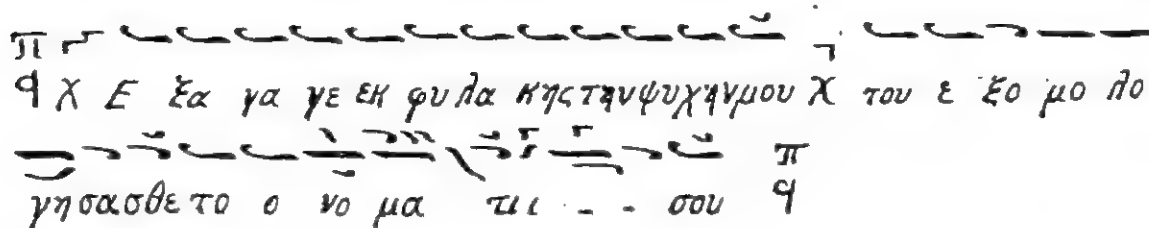 π
q χ Ε ξα γα γε εκ φυ λα κης την ψυχην μου χ του ε ξο μο λο
γη σασθε το ο νο μα τι ι - - σου π q